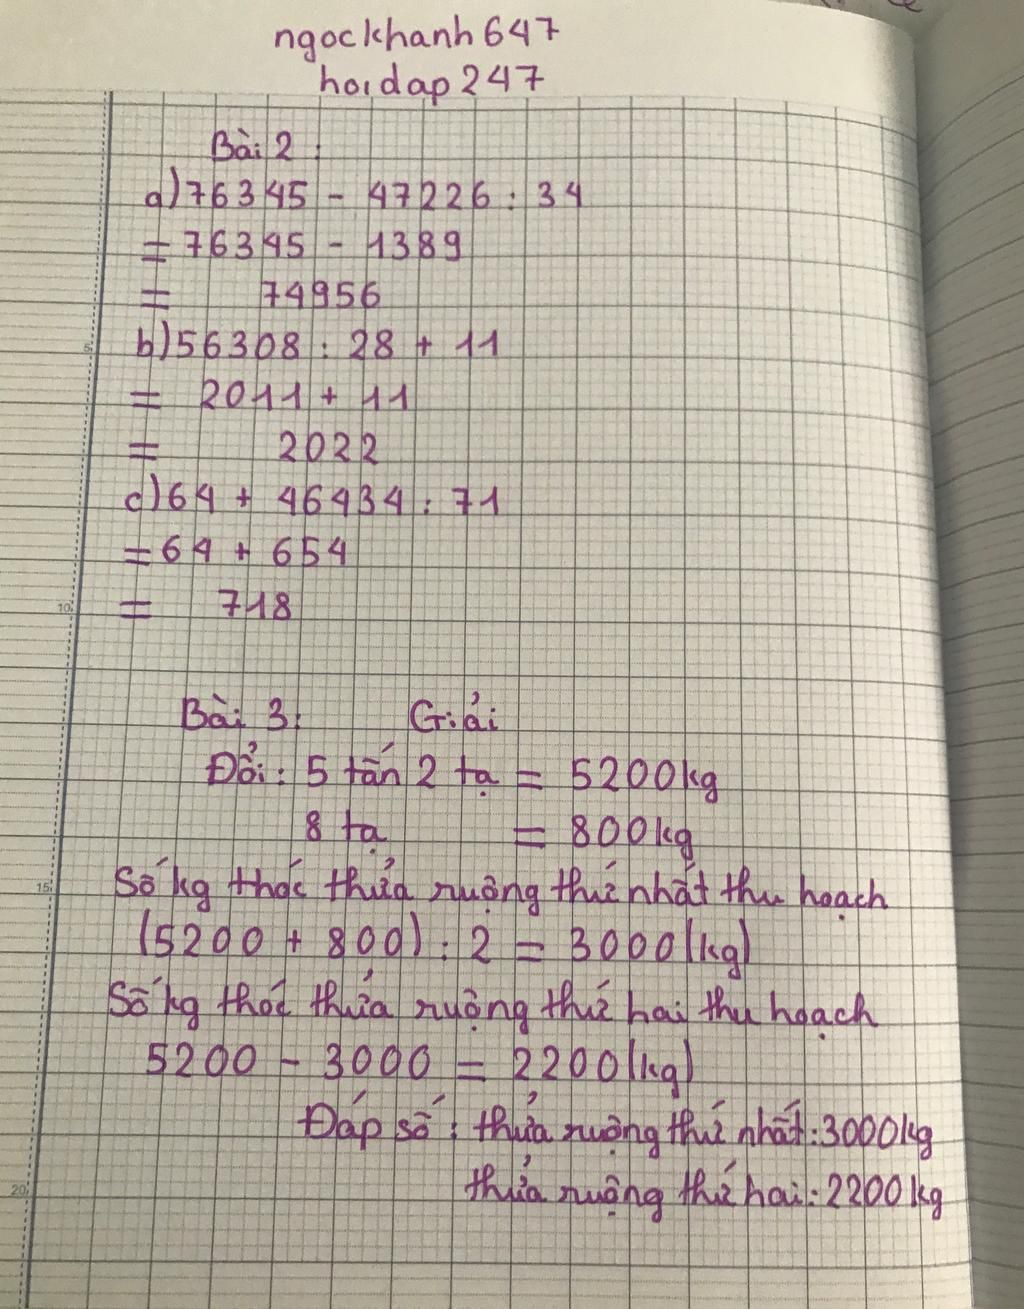 ngockhanh647
hoidap247
Bài 2:
a) 76345 - 47226 : 34
= 76345 - 1389
= 74956
b) 56308 : 28 + 11
= 2011 + 11
= 2022
c) 64 + 46434 : 71
= 64 + 654
= 718
Bài 3: Giải
Đổi: 5 tấn 2 tạ = 5200kg
8 tạ = 800kg
Số kg thóc thửa ruộng thứ nhất thu hoạch
(5200 + 800) : 2 = 3000(kg)
Số kg thóc thửa ruộng thứ hai thu hoạch
5200 - 3000 = 2200(kg)
Đáp số: thửa ruộng thứ nhất: 3000kg
thửa ruộng thứ hai: 2200kg
5
10
15
20